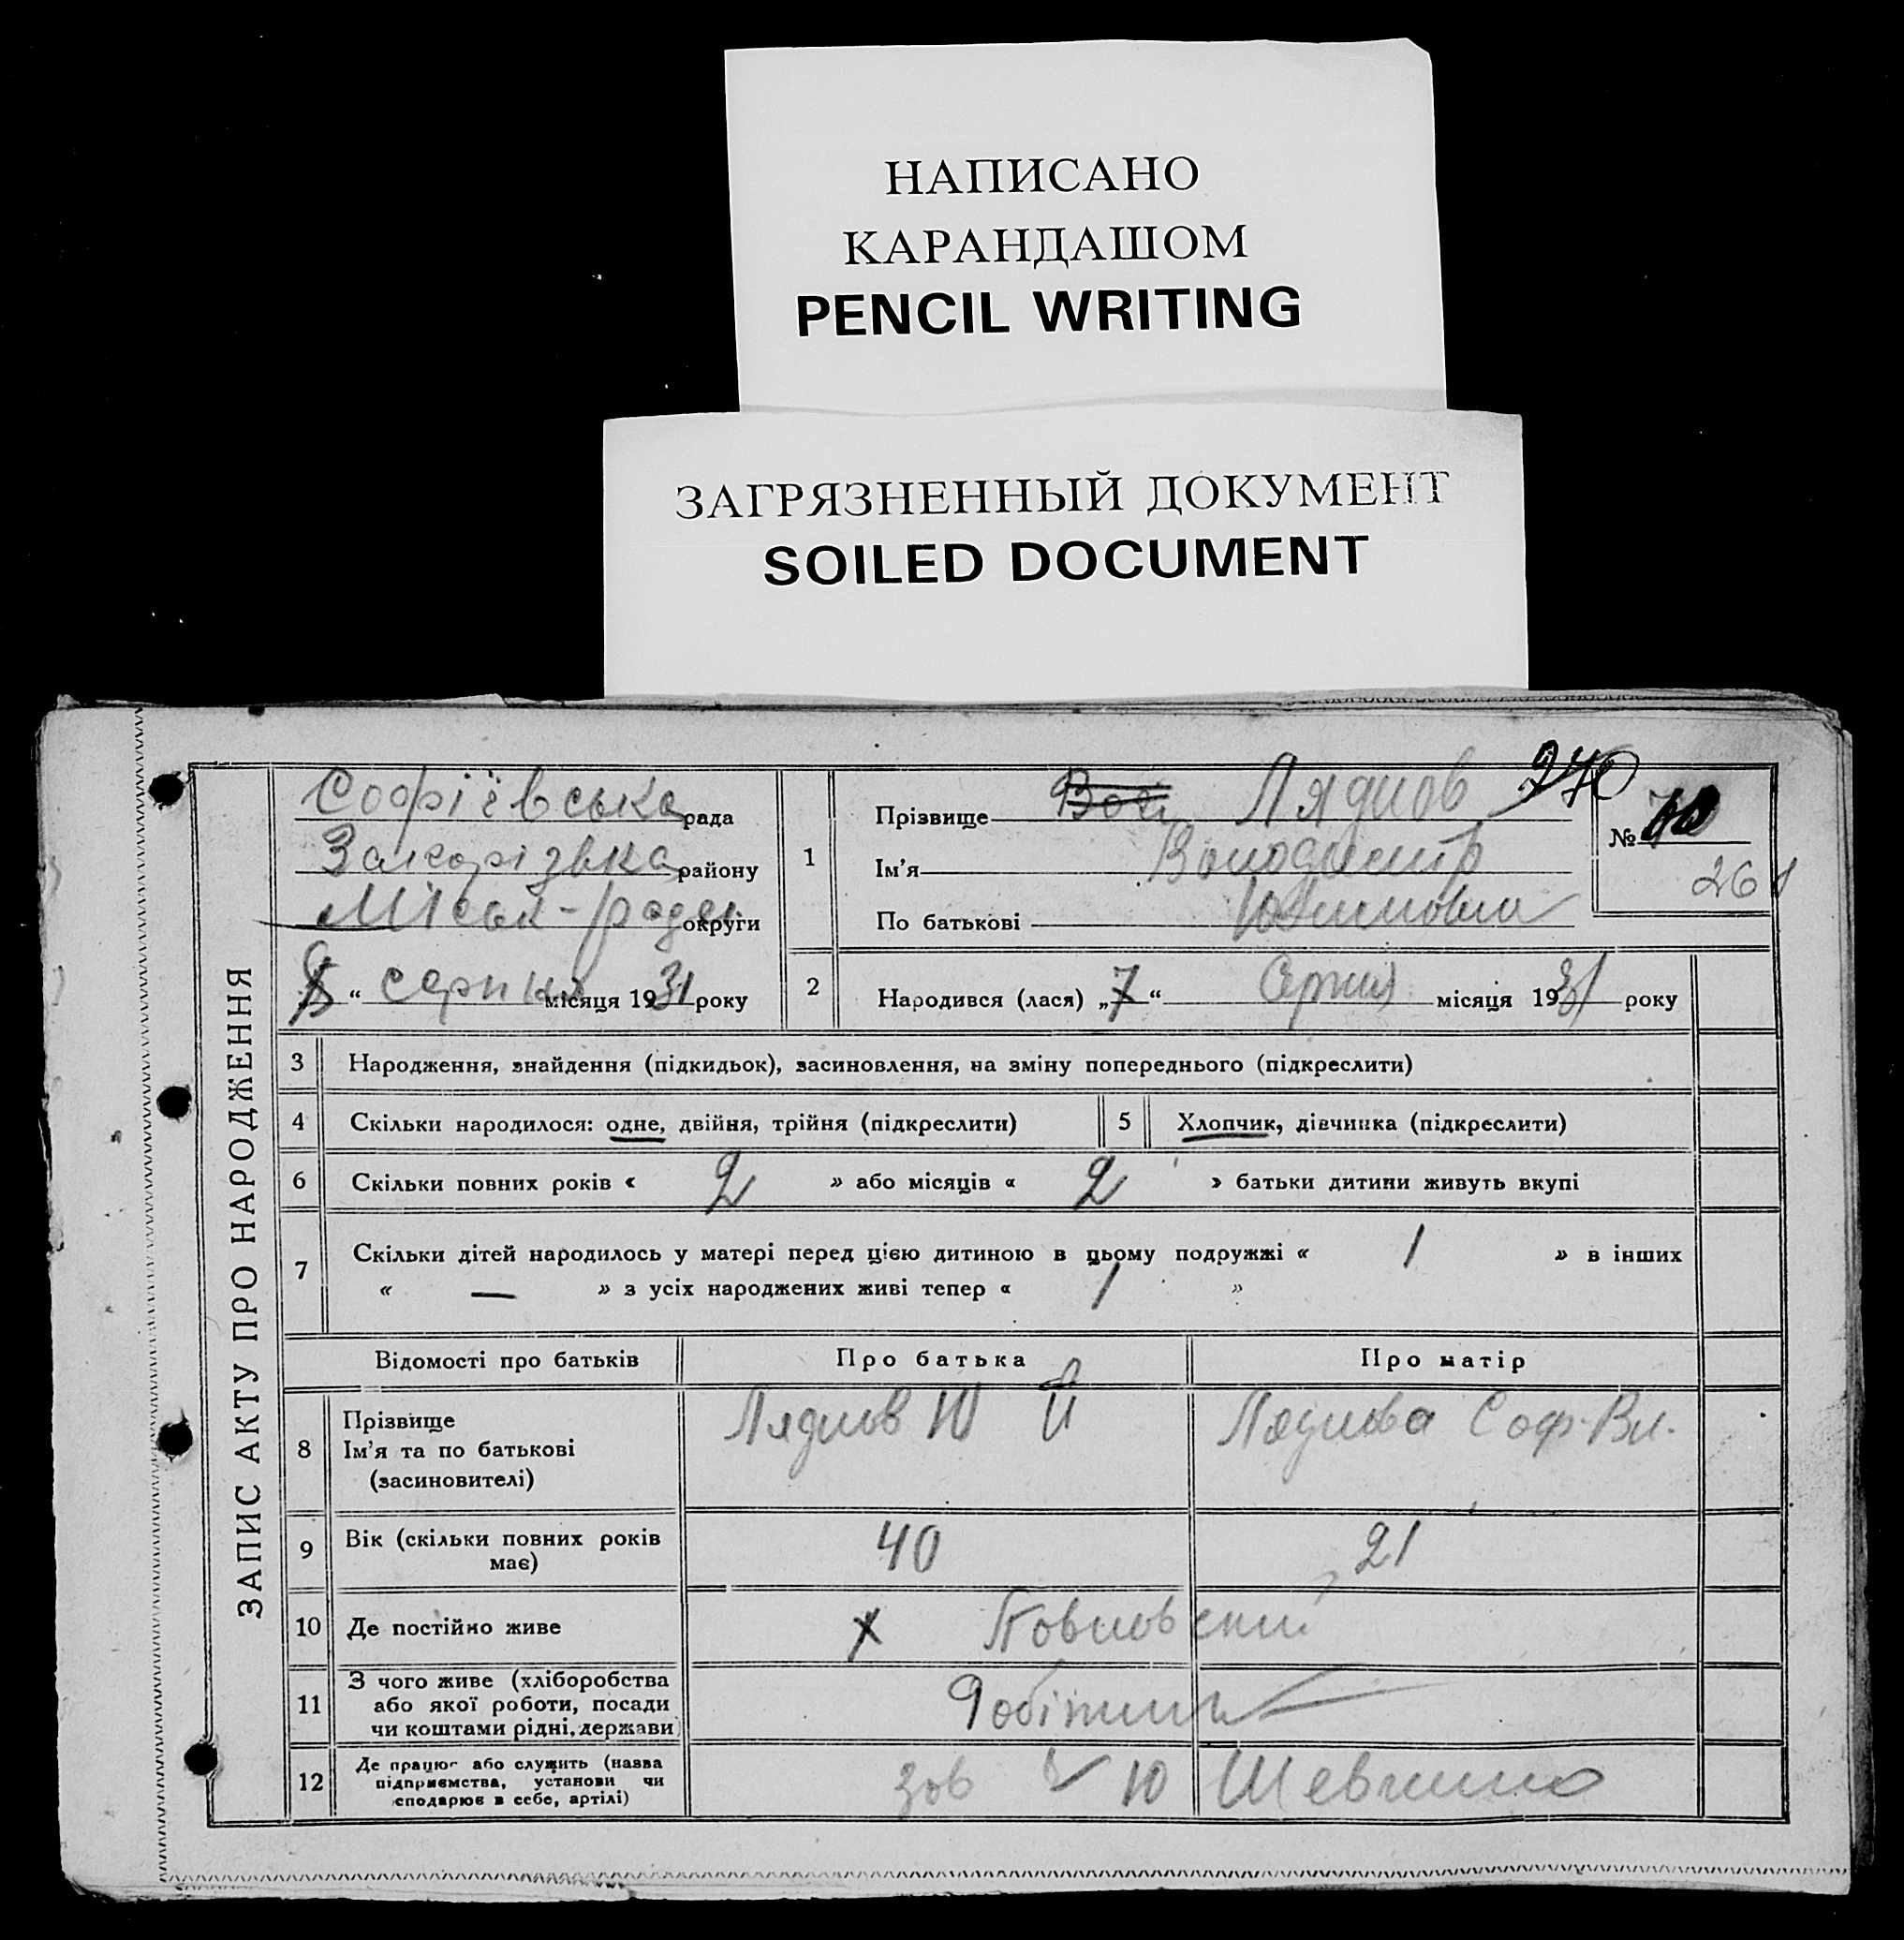 НАПИСАНО
КАРАНДАШОМ
PENCIL WRITING
ЗАГРЯЗНЕННЫЙ ДОКУМЕНТ
SOILED DOCUMENT
ЗАПИС АКТУ ПРО НАРОДЖЕННЯ
Софіївська рада
району
Міськ-ради округи
“ серпня місяця 1931 року
1
Прізвище Ляднов 270
Ім’я Володимир
По батькові
№
261
2
Народився (лася) „7“ Серпня місяця 1931 року
3 Народження, знайдення (підкидьок), засиновлення, на зміну попереднього (підкреслити)
4 Скільки народилося: одне, двійня, трійня (підкреслити)
5 Хлопчик, дівчинка (підкреслити)
6 Скільки повних років « 2 » або місяців « 2 » батьки дитини живуть вкупі
7 Скільки дітей народилось у матері перед цією дитиною в цьому подружжі « 1 » в інших
« — » з усіх народжених живі тепер « 1 »
Відомості про батьків Про батька Про матір
8 Прізвище
Ім’я та по батькові
(засиновителі)
Ляднов Ю Й
Ляднова Соф. Вл.
9 Вік (скільки повних років
має)
40 21
10 Де постійно живе х
11 З чого живе (хліборобства
або якої роботи, посади
чи коштами рідні, держави)
Робітник
12 Де працює або служить (назва
підприємства, установи чи
сподарює в себе, артілі)
зов 10